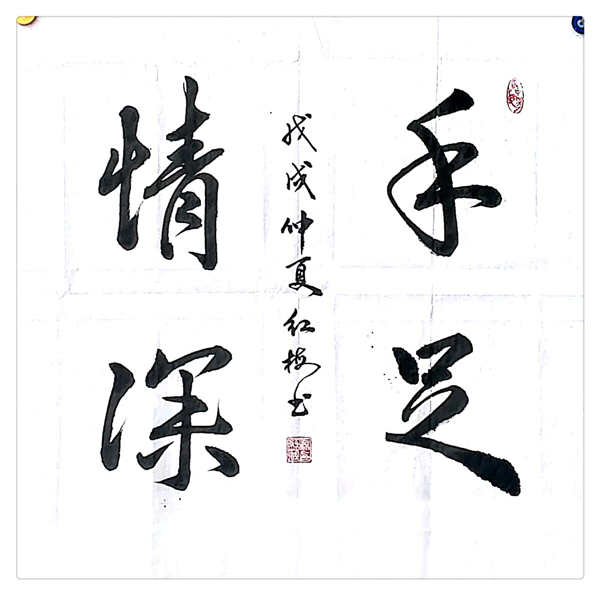 手足
情深
戊戌仲夏红梅书